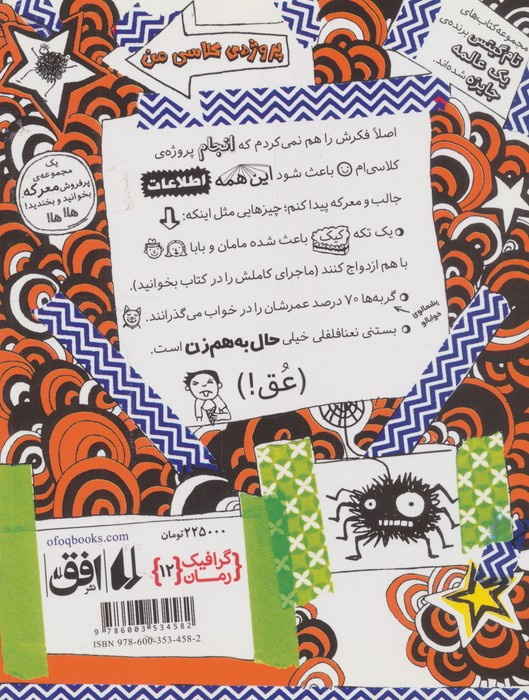 پروژه‌ی کلاسی من
مجموعه کتاب‌های
تام گیتس برنده‌ی
یک عالمه
جایزه شده‌اند.
یک
مجموعه‌ی
پرفروش معرکه
بخوانید و بخندید!
هاها
اصلاً فکرش را هم نمی‌کردم که انجام پروژه‌ی
کلاسی‌ام باعث شود این همه اطلاعات
جالب و معرکه پیدا کنم؛ چیزهایی مثل اینکه:
یک تکه کیک باعث شده مامان و بابا
با هم ازدواج کنند (ماجرای کاملش را در کتاب بخوانید).
گربه‌ها ۷۰ درصد عمرشان را در خواب می‌گذرانند.
پشمالوی
خوابالو
بستنی نعنافلفلی خیلی حال به هم زن است.
(عُق!)
ofoqbooks.com
نشر افق
۲۲۵۰۰۰ تومان
{گرافیک
رمان} {۱۲}
9 786003 534582
ISBN 978-600-353-458-2